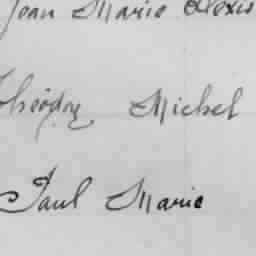 Jean Marie Alexis
Théodore Michel
Paul Marie